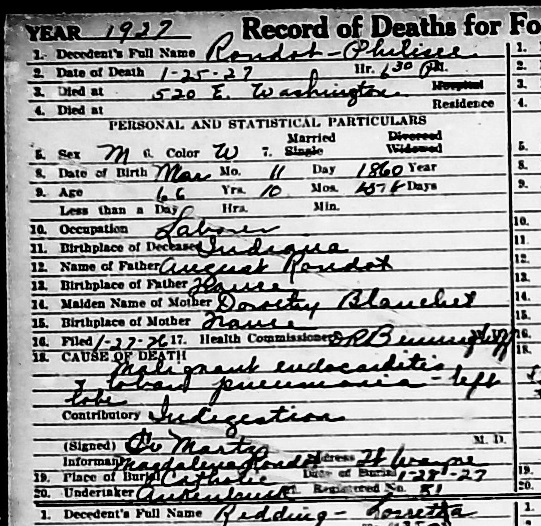 YEAR 1927 Record of Deaths for Fo
1. Decedent's Full Name Rondot - Philisee 1.
2. Date of Death 1-25-27 Hr. 6 30 PM. 2.
3. Died at 520 E. Washington Hospital 3.
4. Died at Residence 4.
PERSONAL AND STATISTICAL PARTICULARS
Married Divorced
5. Sex M 6. Color W 7. Single Widowed 5.
8. Date of Birth Mar Mo. 11 Day 1860 Year 8.
9. Age 66 Yrs. 10 Mos. Days 9.
Less than a Day Hrs. Min.
10. Occupation Laborer 10.
11. Birthplace of Deceased Indiana 11.
12. Name of Father August Rondot 12.
13. Birthplace of Father France 13.
14. Maiden Name of Mother Dorothy Blanchet 14.
15. Birthplace of Mother France 15.
16. Filed 1-27-26 17. Health Commissioner 16.
18. CAUSE OF DEATH 18.
Malignant endocarditis
& lobar pneumonia - left
lobe
Contributory Indigestion
(Signed) Martz M. D.
Informant Magdalena Rondot Address Ft Wayne
19. Place of Burial Catholic Date of Burial 1-28-27 19.
20. Undertaker 21. Registered No. 51 20.
1. Decedent's Full Name Redding - Loretta 1.